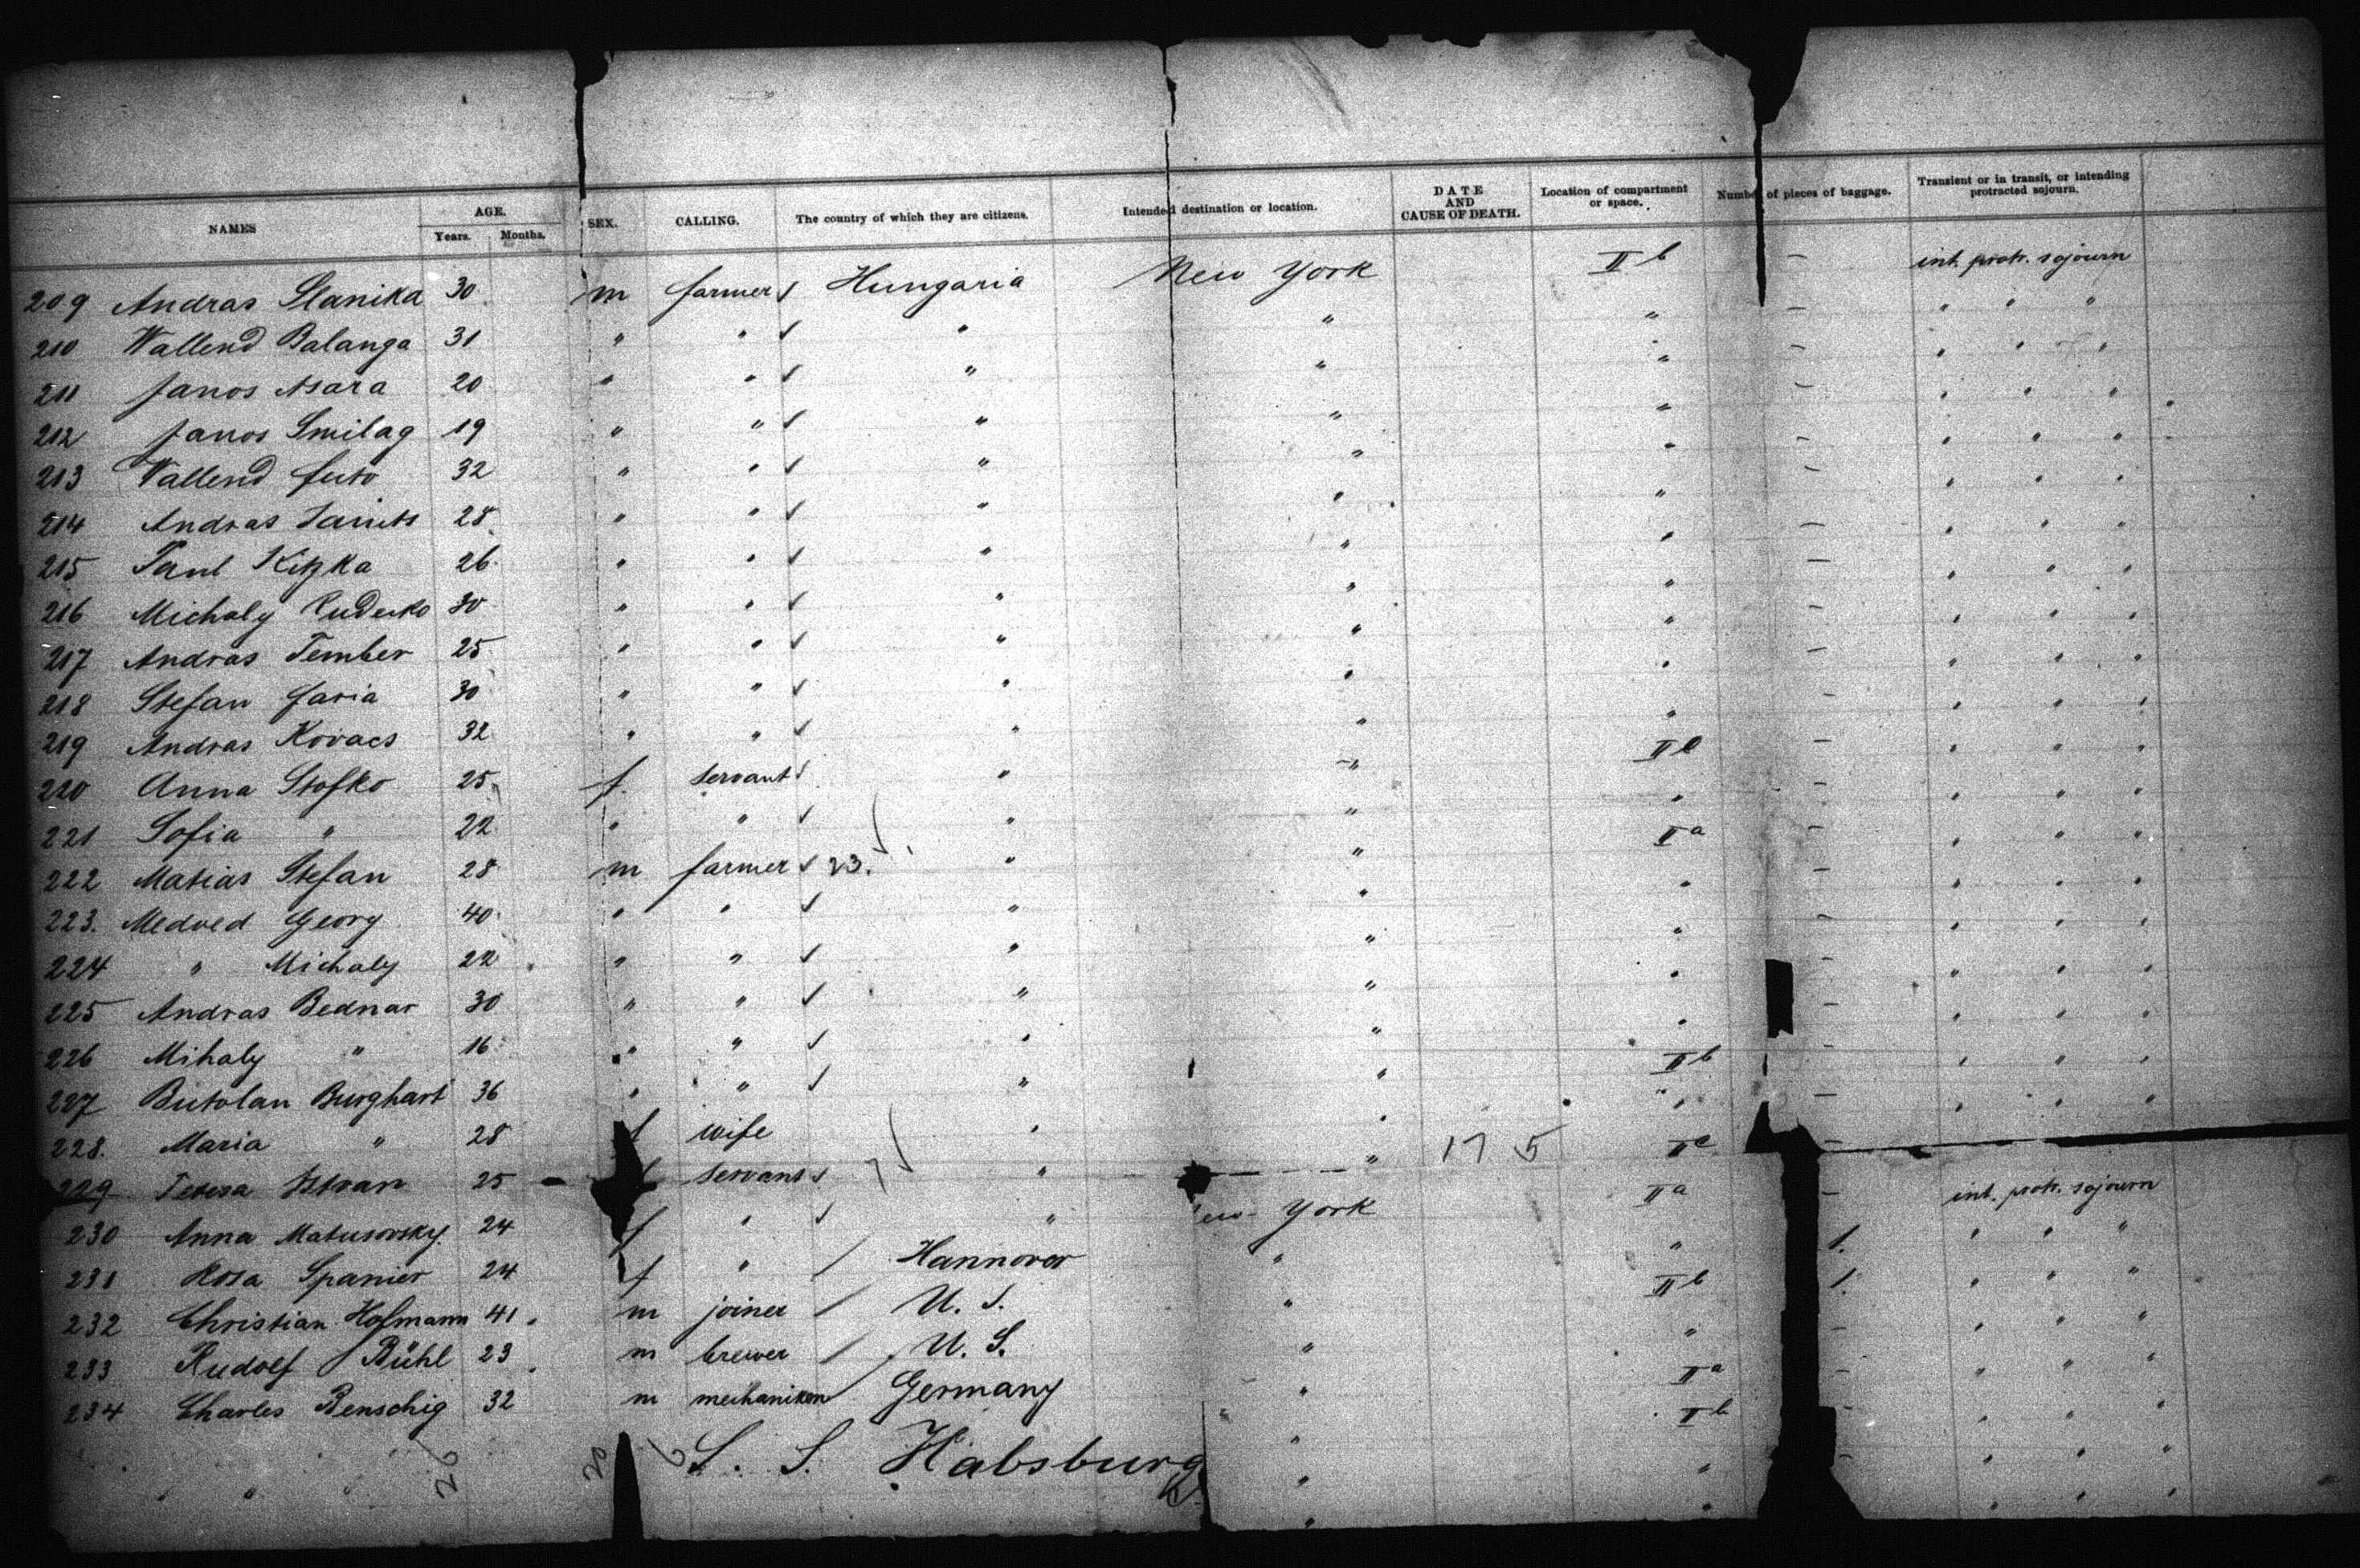 NAMES AGE. Years. Months. SEX. CALLING. The country of which they are citizens. Intended destination or location. DATE AND CAUSE OF DEATH. Location of compartment or space. Number of pieces of baggage. Transient or in transit, or intending protracted sojourn.
209 Andras Slanika 30 m farmer ✓ Hungaria New York II b – int. protr. sojourn
210 Wallend Balanga 31 " " ✓ " " " – " " "
211 Janos Asara 20 " " ✓ " " " – " " "
212 Janos Smilag 19 " " ✓ " " " – " " "
213 Wallend Juto 32 " " ✓ " " " – " " "
214 Andras 28 " " ✓ " " " – " " "
215 Paul Kitzka 26 " " ✓ " " " – " " "
216 Michaly 30 " " ✓ " " " – " " "
217 Andras Tember 25 " " ✓ " " " – " " "
218 Stefan Jaria 30 " " ✓ " " " – " " "
219 Andras Kovacs 32 " " ✓ " " " – " " "
220 Anna Stofko 25 f servant ✓ " " II – " " "
221 Sofia " 22 " " ✓ " " " – " " "
222 Matias Stefan 28 m farmer ✓ 23. " " II a – " " "
223. Medved Georg 40 " " ✓ " " " – " " "
224 " Michaly 22 " " ✓ " " " – " " "
225 Andras Bednar 30 " " ✓ " " " – " " "
226 Mihaly " 16 " " ✓ " " " – " " "
227 Burghart 36 " " ✓ " " II b – " " "
228. Maria " 28 f wife " " " – " " "
229 Teresa Istvan 25 servant ✓ " " 17 5 II – " " "
230 Anna Matusovsky 24 f " ✓ " York II a – int. protr. sojourn
231 Rosa Spanier 24 f " / Hannover " " 1. " " "
232 Christian Hofmann 41 m joiner / U. S. " II b 1. " " "
233 Rudolf Bühl 23 m brewer / U. S. " " – " " "
234 Charles Benschig 32 m mechaniker / Germany " II a – " " "
26 20 6 S. S. Habsburg " II b